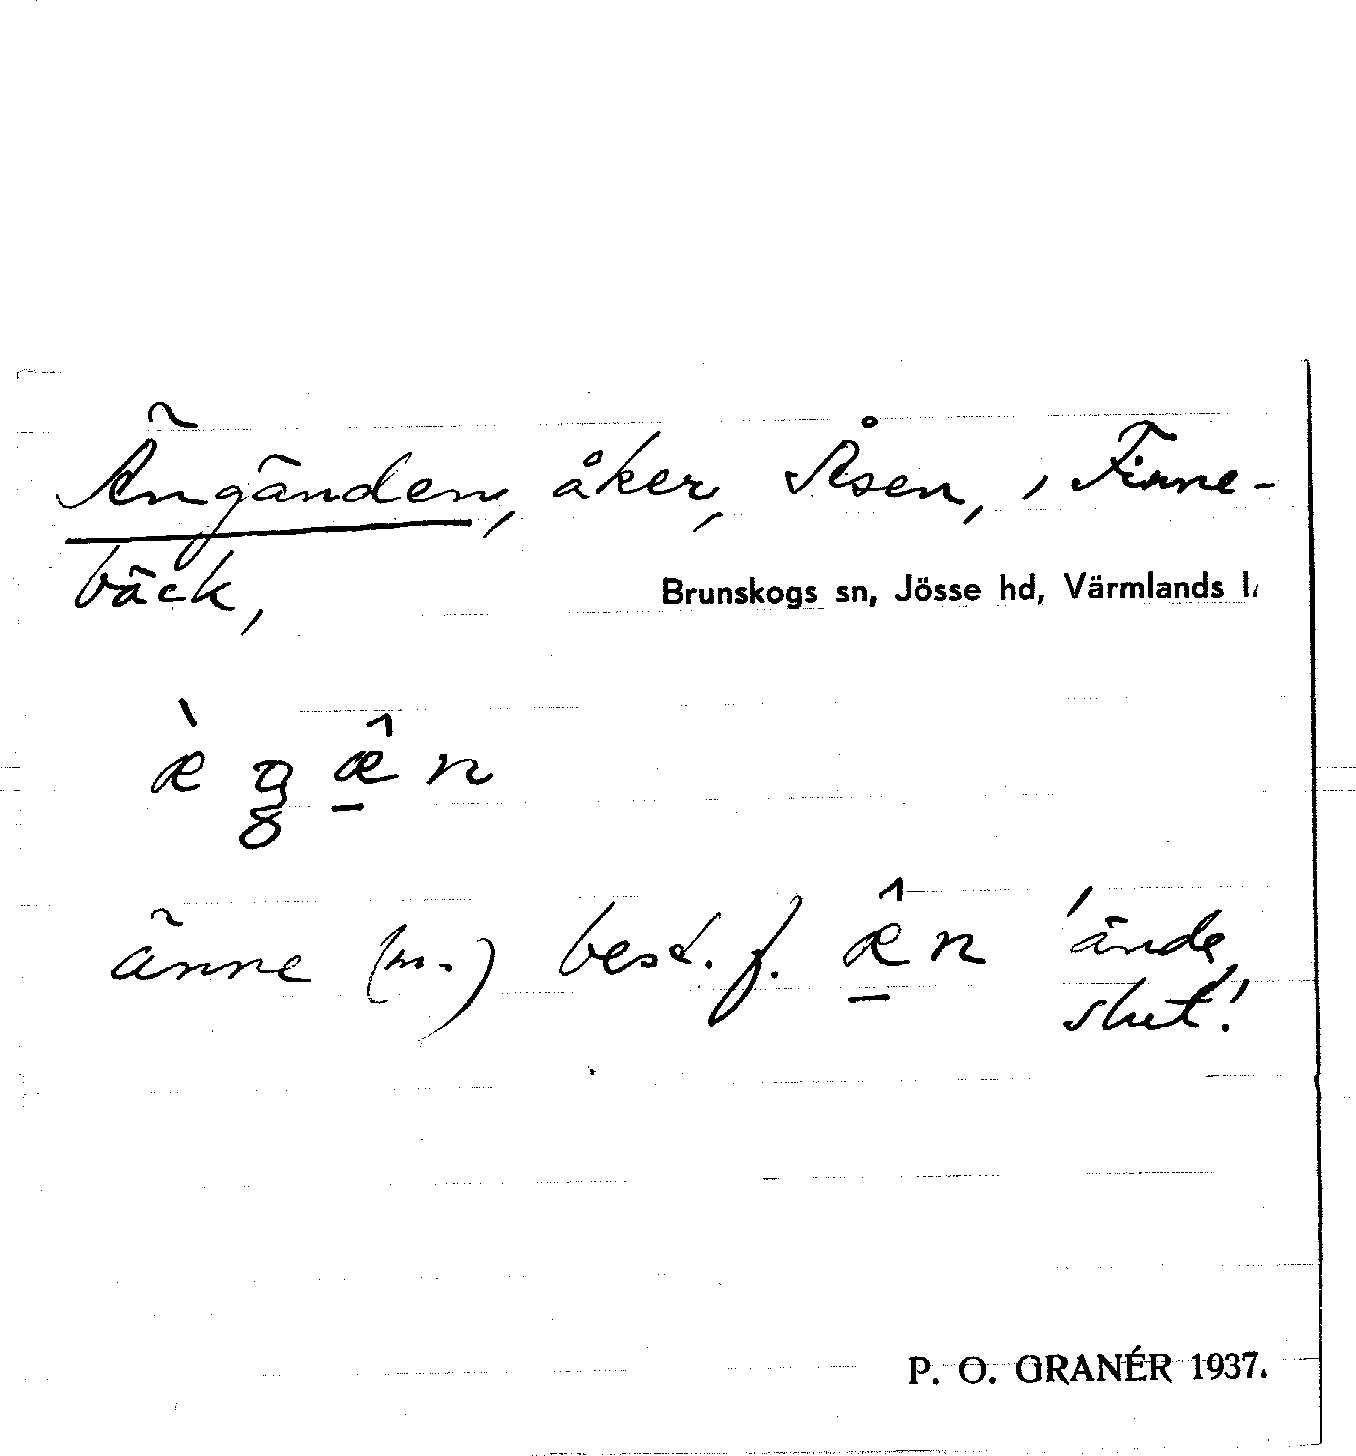 Ängänden, åker, Åsen, i Finne-
bäck,
Brunskogs sn, Jösse hd, Värmlands l.
æ̀ g æ̂ n
änne (m.) best. f. æ̂ n 'ände,
slut'.
P. O. GRANÉR 1937.